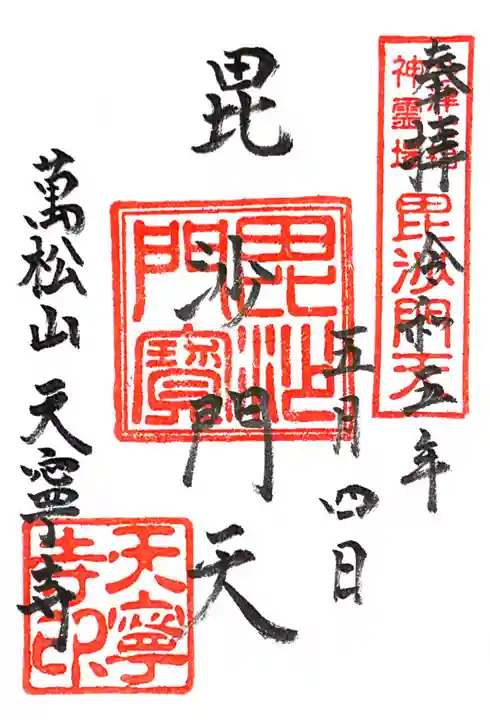 奉拝
令和五年
五月四日
毘沙門天
萬松山 天寧寺
神霊場
毘沙門天
毘沙門寶
天寧寺印